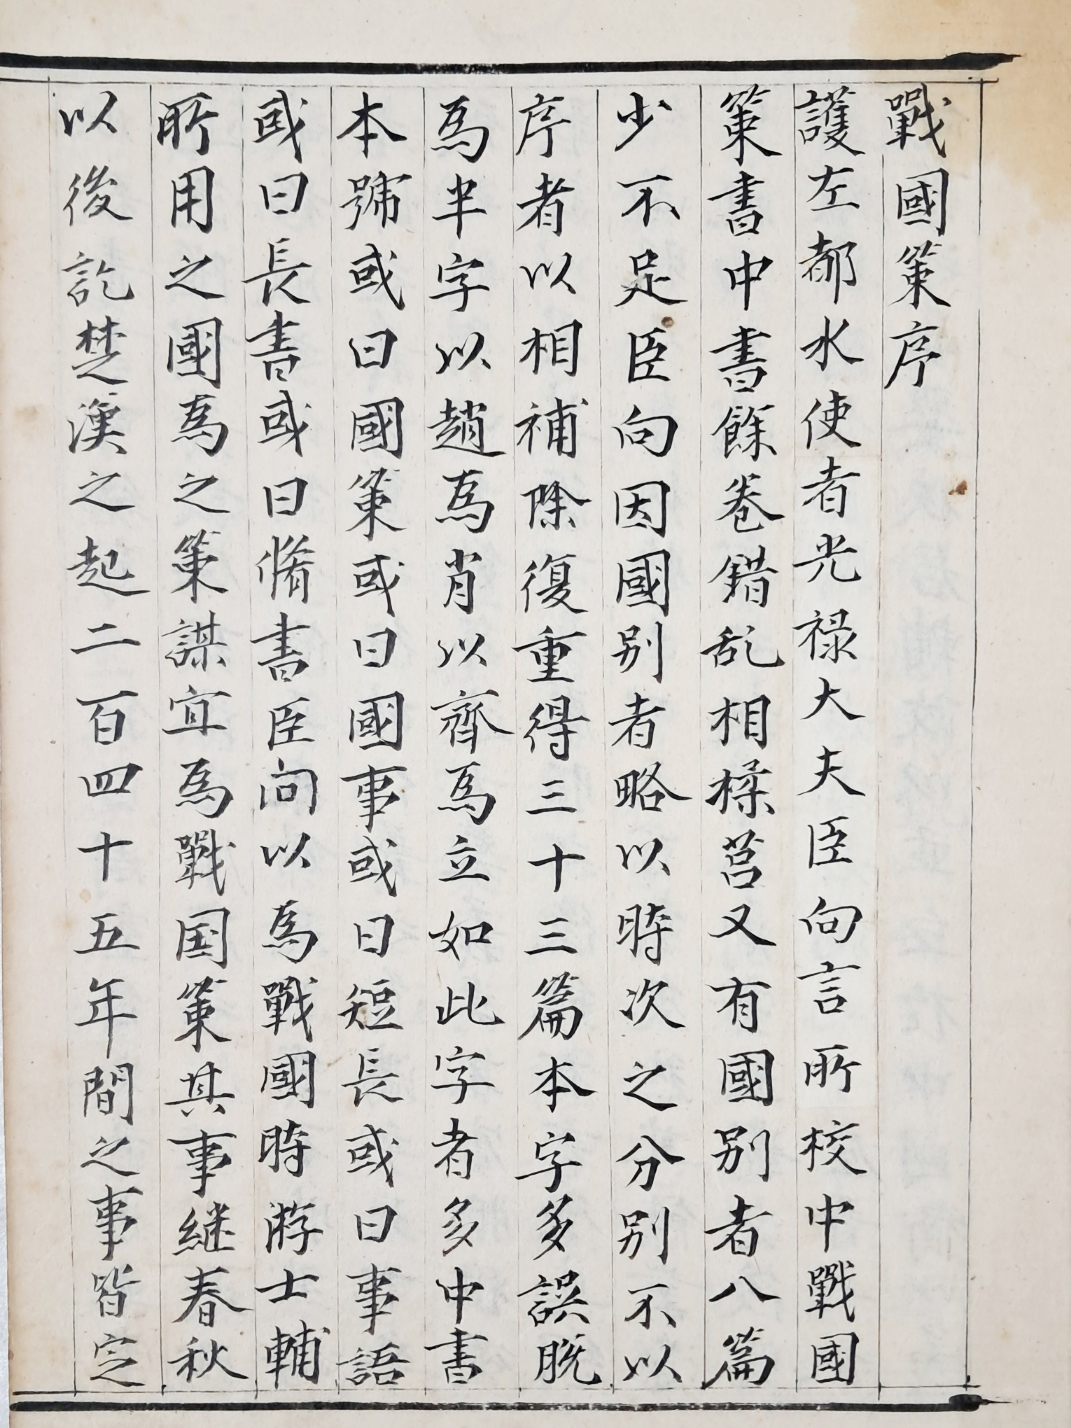 戰國策序
護左都水使者光祿大夫臣向言所校中戰國
策書中書餘卷錯乱相糅莒又有國別者八篇
少不足臣向因國別者略以時次之分別不以
序者以相補除復重得三十三篇本字多誤脫
為半字以趙為肖以齊為立如此字者多中書
本號或曰國策或曰國事或曰短長或曰事語
或曰長書或曰脩書臣向以為戰國時游士輔
所用之國為之策謀宜為戰国策其事継春秋
以後訖楚漢之起二百四十五年間之事皆定